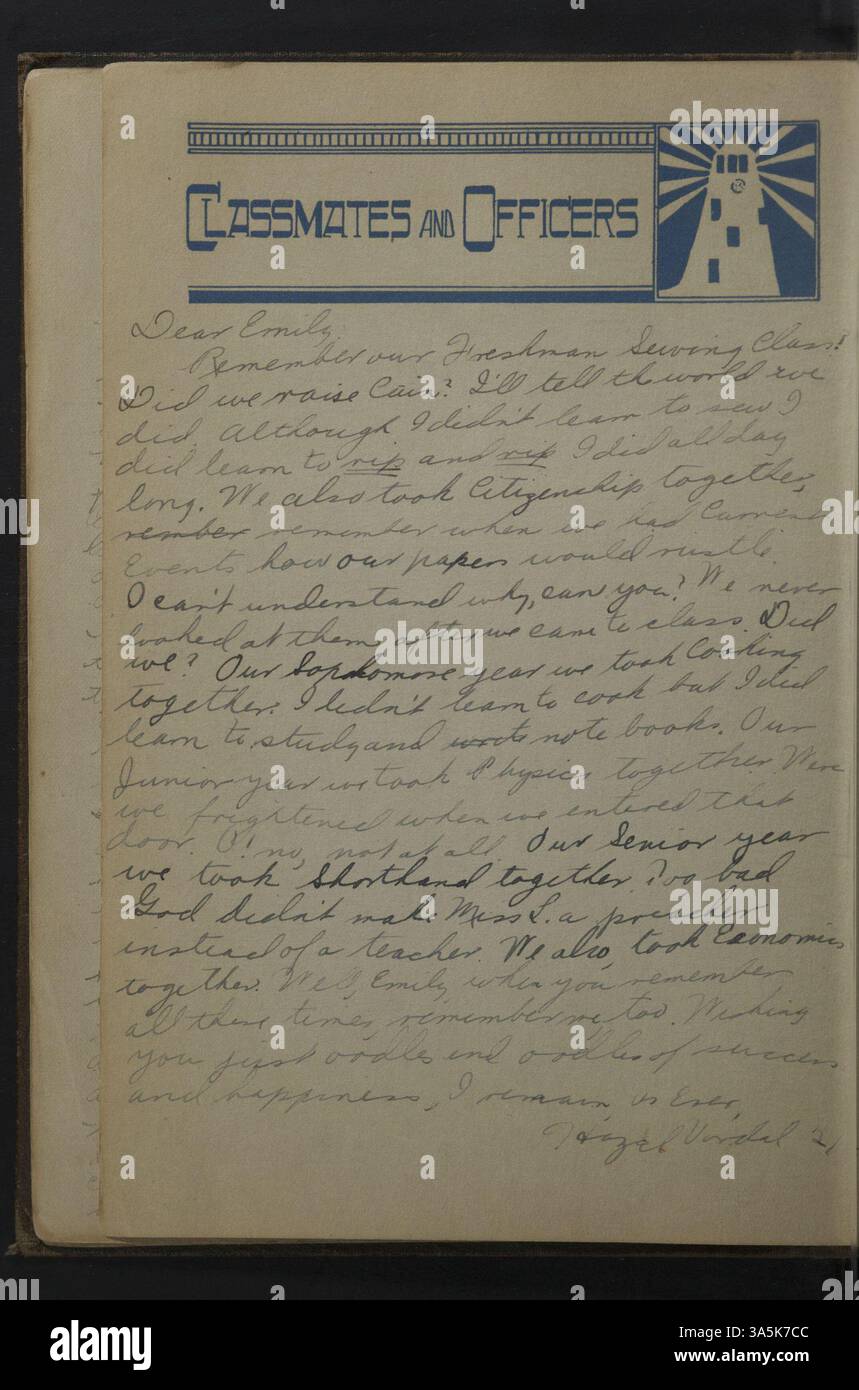 CLASSMATES AND OFFICERS
Dear Emily,
Remember our Freshman Sewing Class!
Did we raise Cain? I'll tell the world we
did. Although I didn't learn to sew I
did learn to rip and rip I did all day
long. We also took Citizenship together,
rember remember when we had Current
Events how our papers would rustle.
I can't understand why, can you? We never
looked at them after we came to class. Did
we? Our Sophomore year we took Cooking
together. I didn't learn to cook but I did
learn to study and wrote note books. Our
Junior year we took Physics together. Were
we frightened when we entered that
door. O! no, not at all. Our Senior year
we took Shorthand together. Too bad
God didn't make Miss L. a preacher
instead of a teacher. We also took Economics
together. Well, Emily when you remember
all these times, remember me too. Wishing
you just oodles and oodles of success
and happiness, I remain, as Ever,
Hazel Vordal 21
alamy
Image ID: 3A5K7CC
www.alamy.com